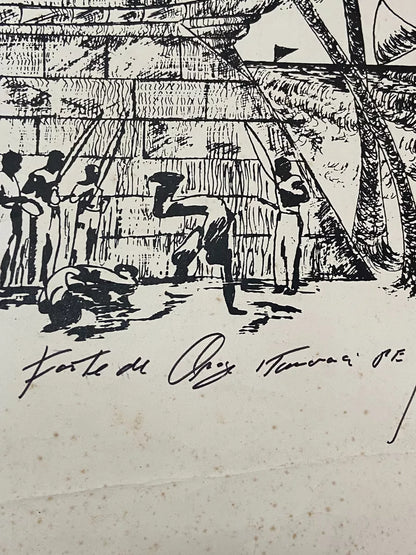 Forte de Orange Itamaracá PE